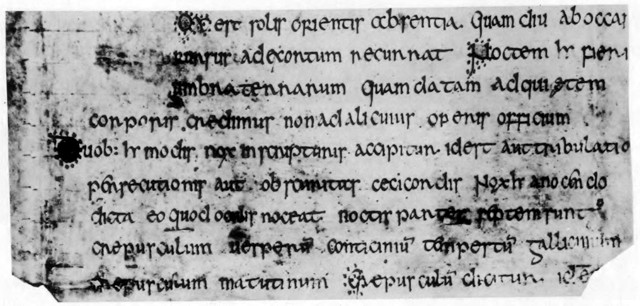 Nox est solis orientis absentia. Quam diu ab occas
rursus ad exortum recurrat Noctem hr fieri
umbra terrarum quam datam ad quietem
corporis credimus non ad alicuius operis officium
Duob: hr modis nox in scripturis accipitur. id est aut tribulatio
persecutionis aut obscuritas ceci cordis Nox hr a nocendo
dicta eo quod oculis noceat noctis partes septem sunt
crepusculum uesperū conticiniū tempestū galliciniū
crepusculum matutinum Crepusculū dicitur. id est